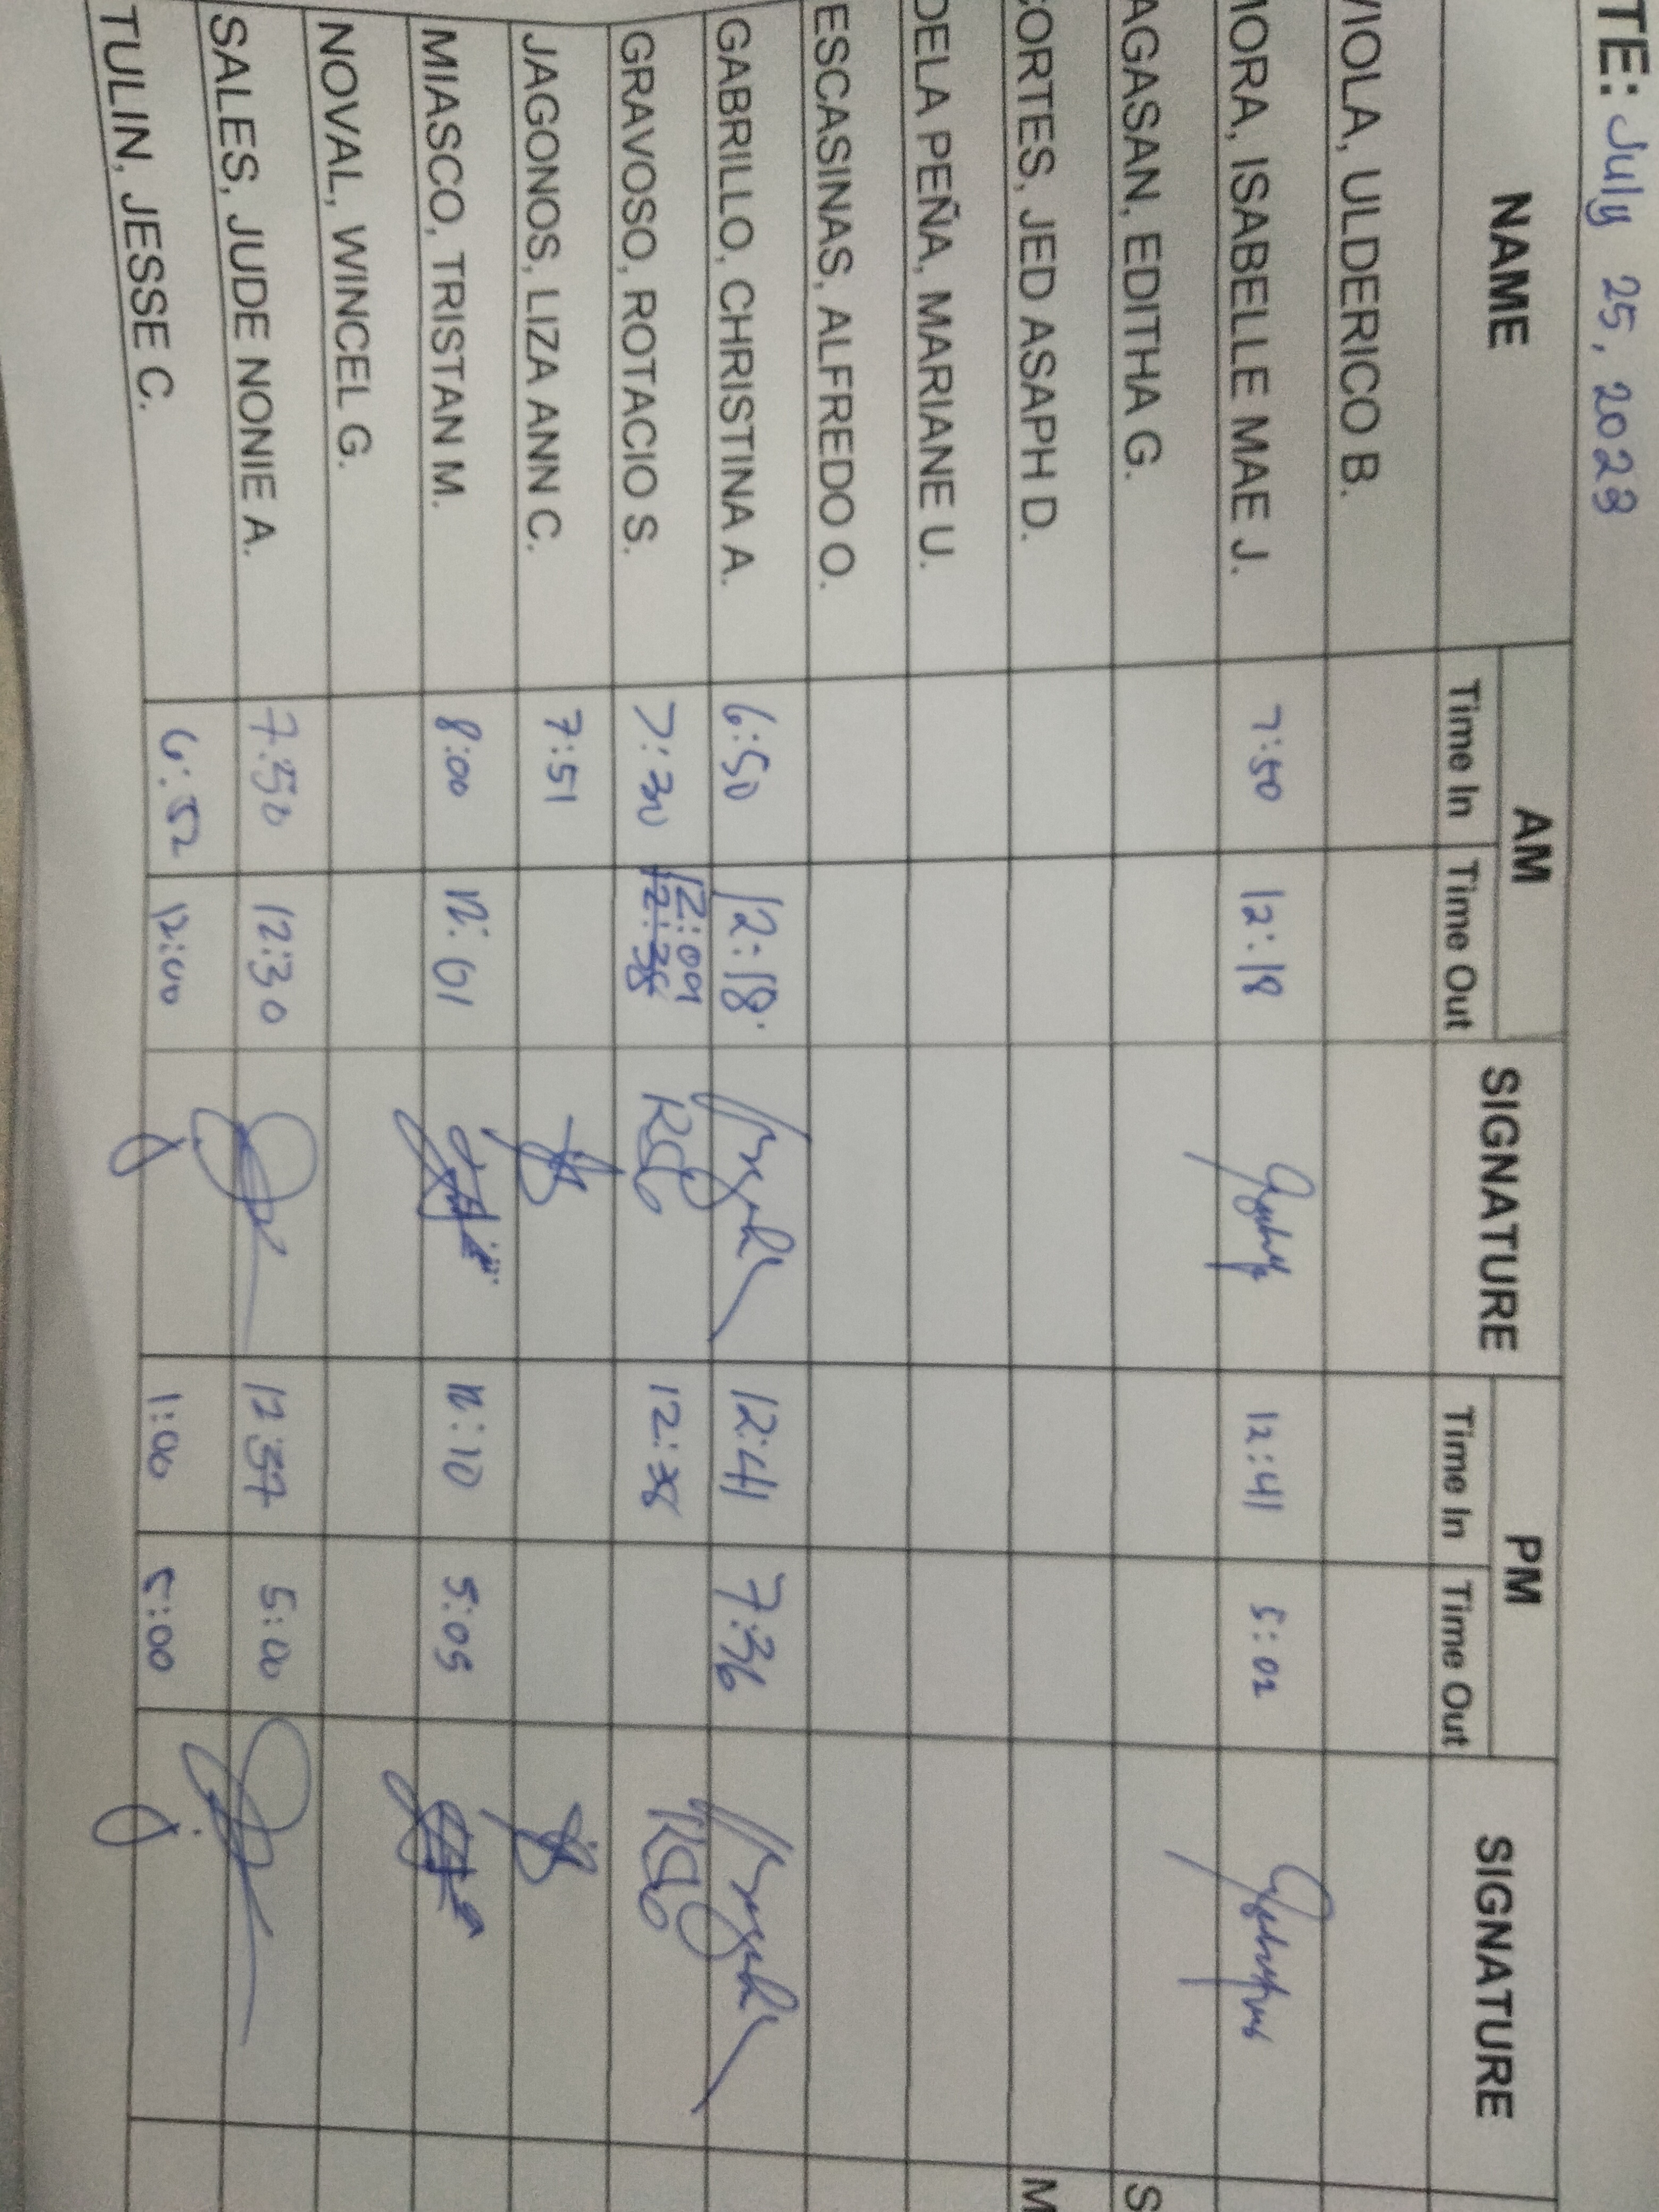 TE: July 25, 2023
NAME AM SIGNATURE PM SIGNATURE
Time In Time Out Time In Time Out
VIOLA, ULDERICO B.
IORA, ISABELLE MAE J. 7:50 12:18 12:41 5:02
AGASAN, EDITHA G. S
CORTES, JED ASAPH D. M
DELA PEÑA, MARIANE U.
ESCASINAS, ALFREDO O.
GABRILLO, CHRISTINA A. 6:50 12:18 12:41 7:36
GRAVOSO, ROTACIO S. 7:30 12:09 12:38 RSG 12:38 RSG
JAGONOS, LIZA ANN C. 7:51
MIASCO, TRISTAN M. 8:00 12:01 12:10 5:05
NOVAL, WINCEL G.
SALES, JUDE NONIE A. 7:50 12:30 12:37 5:00
TULIN, JESSE C. 6:52 12:00 1:00 5:00